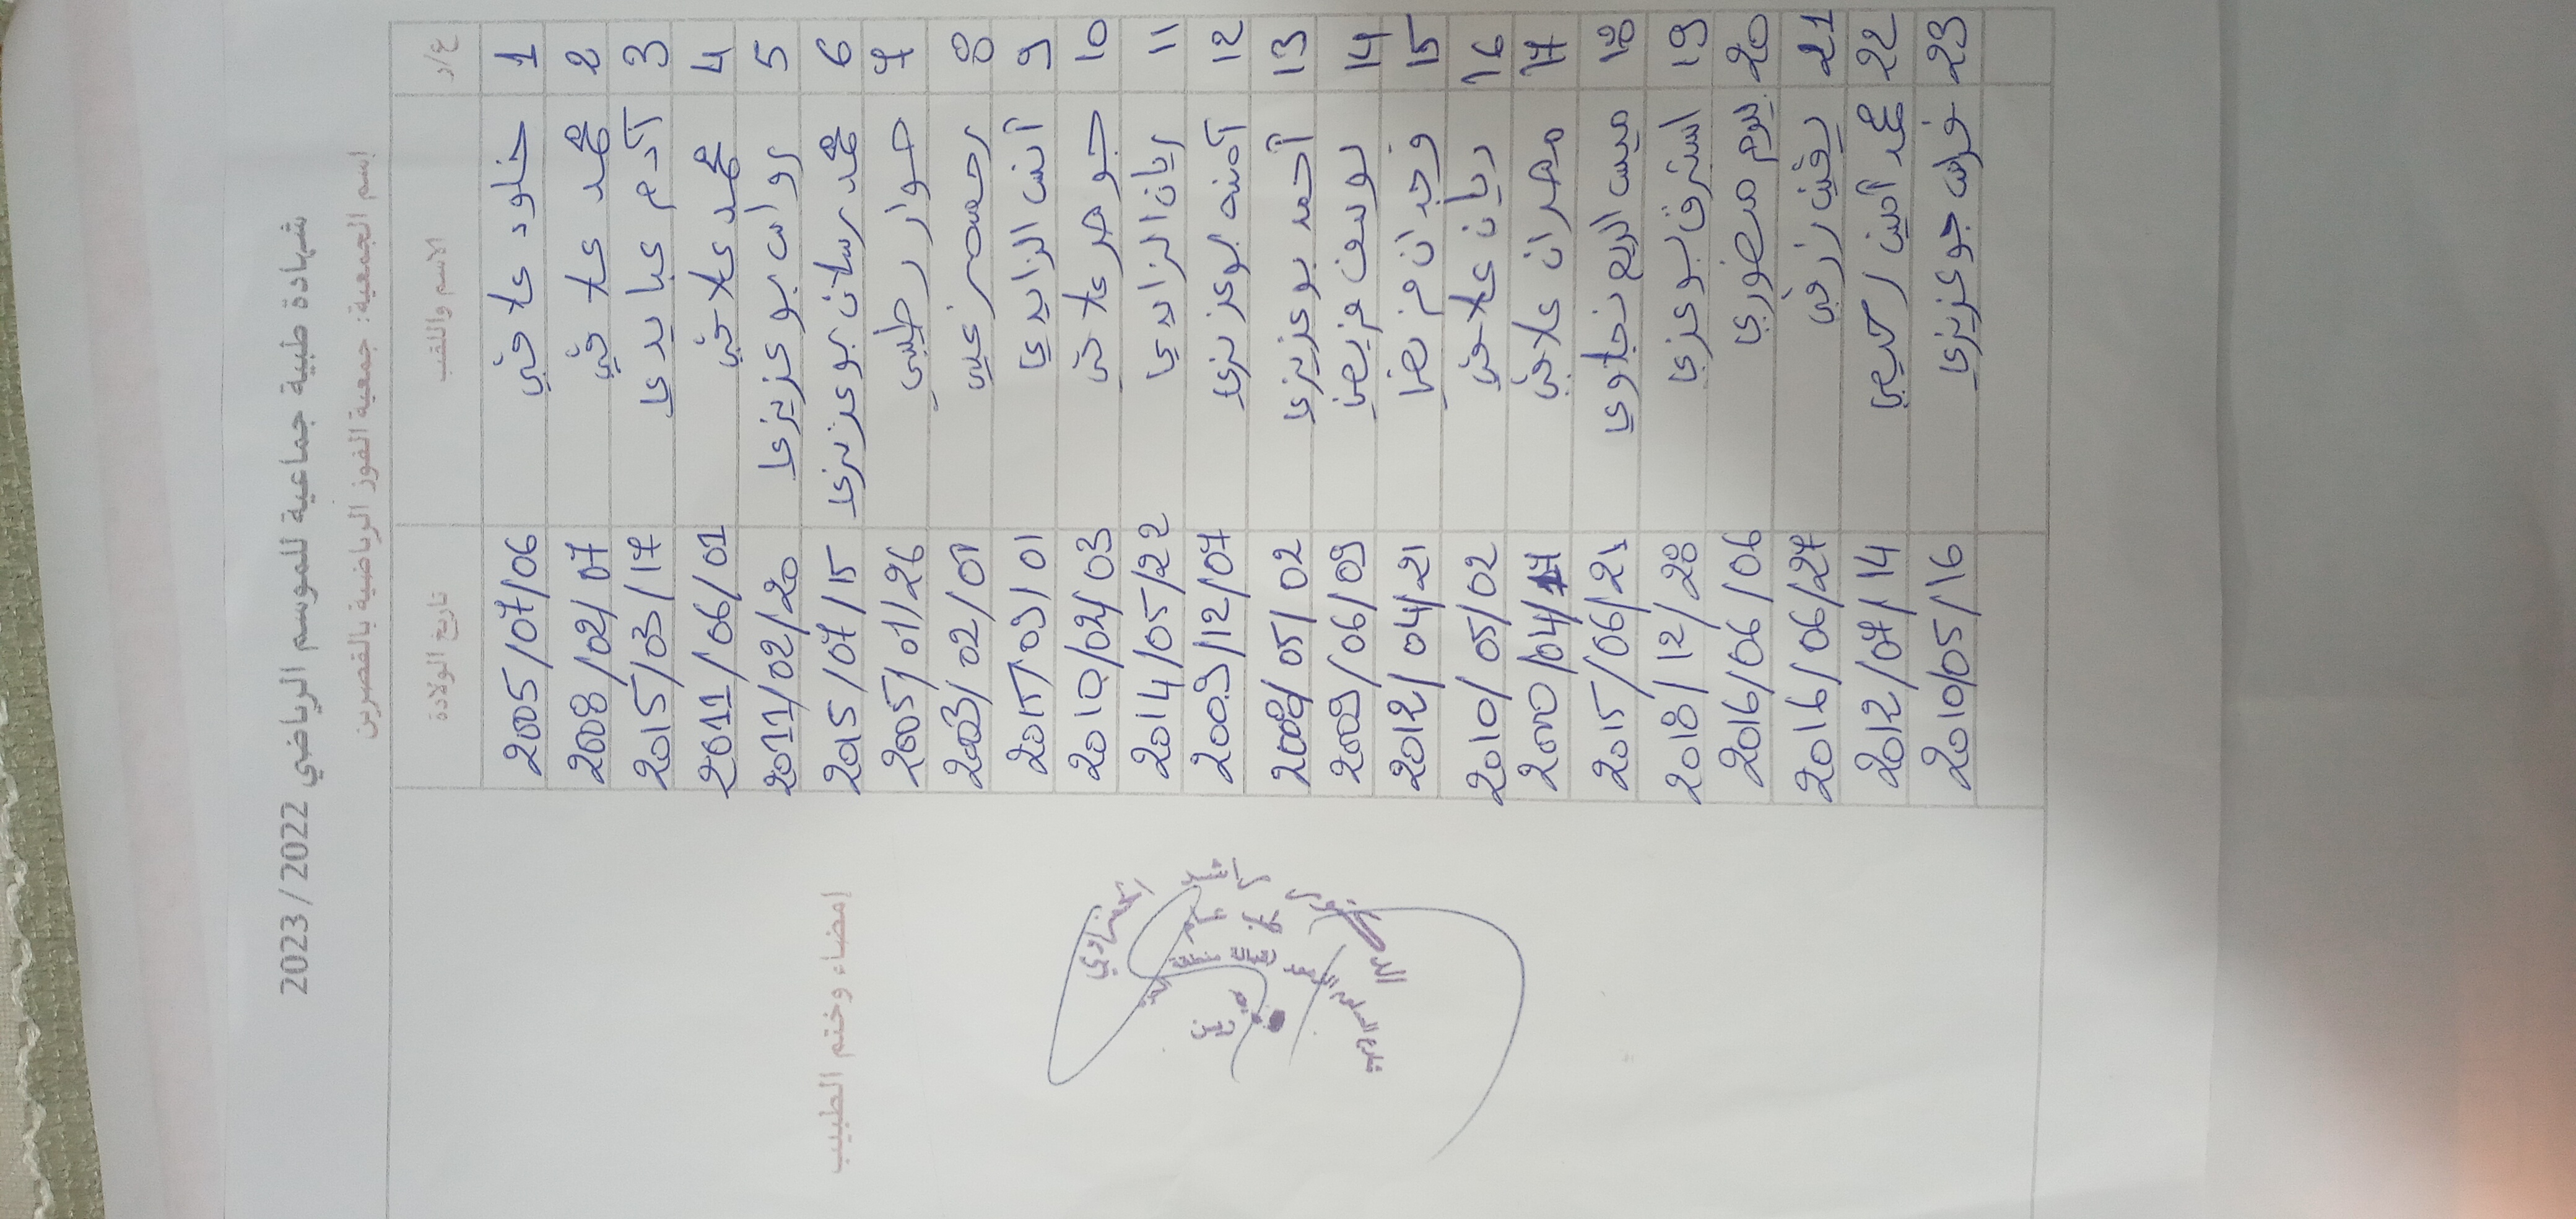 شهادة طبية جماعية للموسم الرياضي 2022 / 2023
إسم الجمعية: جمعية الفوز الرياضية بالقصرين
ع/د الاسم واللقب تاريخ الولادة
1 خلود علاقي 2005/07/06
2 محمد علاقي 2008/02/07
3 آدم عبايدي 2015/03/17
4 محمد علاقي 2011/06/01
5 رواب بوعزيزي 2011/02/20
6 محمد رسلان بوعزيزي 2015/07/15
7 حوار رطيبي 2005/01/26
8 زعبي 2003/02/01
9 آنس الزايدي 2015/09/01
10 جوهر علاقي 2010/04/03
11 ريان الزايدي 2014/05/22
12 آمنه بوعزيزي 2009/12/07
13 أحمد بوعزيزي 05/02
14 يوسف 2009/06/09
15 وجدان 2012/04/21
16 ريان علاقي 2010/05/02
17 مهران علاقي 2010/04/17
18 ميس الريم نجلاوي 2015/06/21
19 استبرق بوعزي 2018/12/28
20 منصوري 2016/06/06
21 يقين زرقي 2016/06/27
22 محمد آمين رحيمي 2012/07/14
23 فراس بوعزيزي 2010/05/16
إمضاء وختم الطبيب